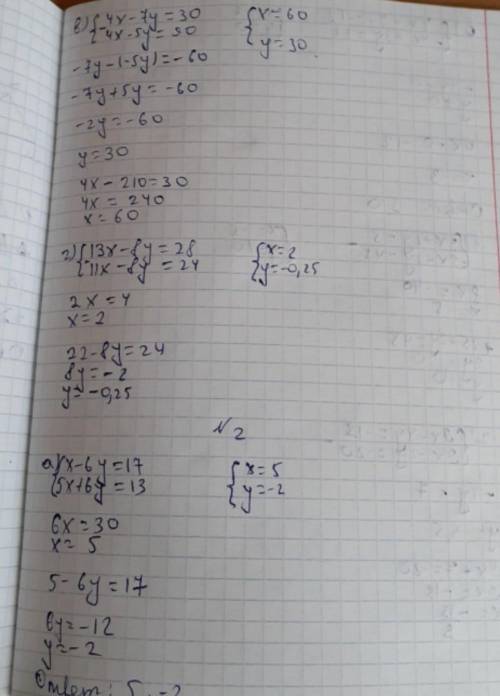 в) { 4x - 7y = 30
{ 4x - 5y = 90
{ x = 60
{ y = 30
-7y - (-5y) = -60
-7y + 5y = -60
-2y = -60
y = 30
4x - 210 = 30
4x = 240
x = 60
г) { 13x - 8y = 28
{ 11x - 8y = 24
{ x = 2
{ y = -0,25
2x = 4
x = 2
22 - 8y = 24
8y = -2
y = -0,25
№ 2
а) { x - 6y = 17
{ 5x + 6y = 13
{ x = 5
{ y = -2
6x = 30
x = 5
5 - 6y = 17
6y = -12
y = -2
Ответ: 5, -2